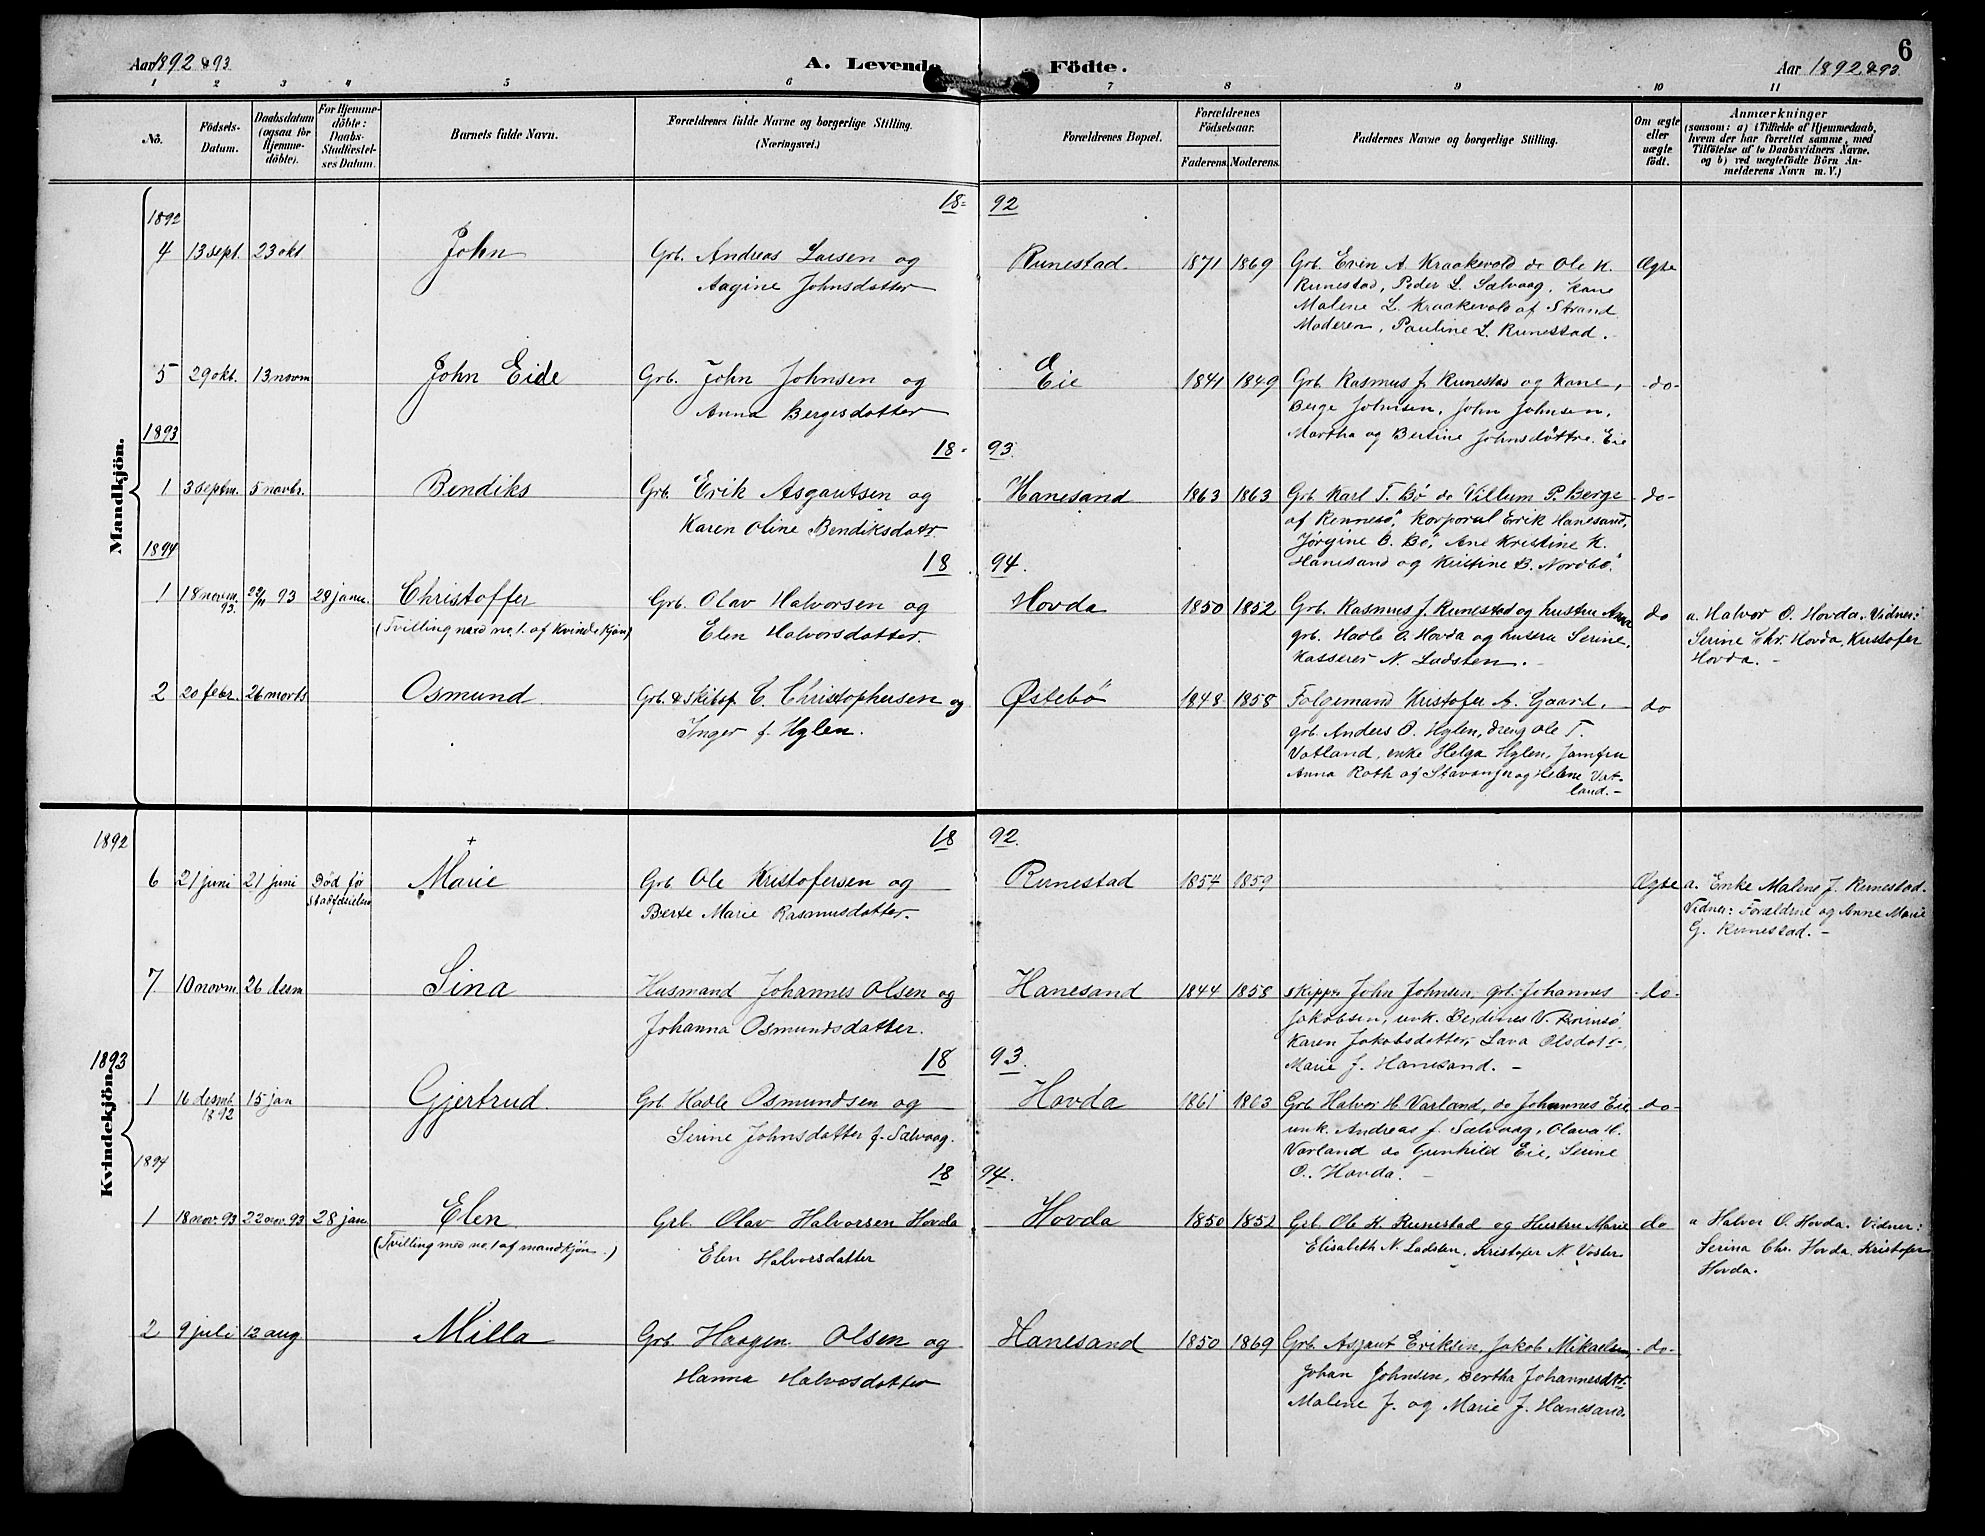 Aar 1892 & 93 A. Levende Födte. Aar 1892 & 93. 6
1 2 3 4 5 6 7 8 9 10 11
No. Födsels-Datum. Daabsdatum (ogsaa for Hjemmedöbte). For Hjemmedöbte: Daabs-Stadfæstelses Datum. Barnets fulde Navn. Forældrenes fulde Navne og borgerlige Stilling. (Næringsvei.) Forældrenes Bopæl. Forældrenes Födselsaar. Faderens. Moderens. Faddernes Navne og borgerlige Stilling. Om ægte eller uægte födt. Anmærkninger
(saasom: a) i Tilfælde af Hjemmedaab,
hvem der har forrettet samme, med
Tilföielse af to Daabsvidners Navne.
og b) ved uægtefödte Börn Anmelderens Navn m. V.)
Mandkjön.
1892 18- 92
4 13 sept. 23 okt John Grb. Andreas Larsen og Runestad. 1871 1869 Grb. Even A. Kraakevold do Ole K. Ægte
Aagine Johnsdatter Runestad, Peder L. Salvaag, kone
Malene L. Kraakevold af Strand
Moderen, Pauline L. Runestad.
5 29 okt. 13 novm John Eide Grb. John Johnsen og Eie 1841 1849 Grb Rasmus J. Runestad og Kone, -do-
Anna Bergesdatter Berge Johnsen, John Johnsen,
Martha og Bertine Johnsdøttre. Eie
1893 18- 93.
1 3 septm. 5 novbr. Bendiks Grb. Erik Asgautsen og Hanesand 1863 1863 Grb Karl T. Bö do Villum P. Berge -do-
Karen Oline Bendiksdatr. af Rennesö, Korporal Erik Hanesand,
Jørgine B. Bö, Ane Kristine K.
Hanesand og Kristine B. Nordbö.
1894 18 94.
1 18 novm. 93. 22/11 93 28 janu. Christoffer Grb. Olav Halvorsen og Hovda 1850 1852 Grb. Rasmus J. Runestad og hustru Anna do a. Halvor O. Hovda. Vidner:
(Tvilling med no. 1. af Kvindekjön) Elen Halvorsdatter. grb. Hadle O. Hovda og hustru Serine, Serine Chr. Hovda, Kristofer
Kasserer N. Ladsten. Hovda.
2 20 febr. 26 marts Osmund Grb. & Skibsf C. Christophersen og Østebö 1848 1858 Følgemand Kristofer A. Gaard, do
Inger f. Hylen. grb. Anders O. Hylen, dreng Ole T.
Vatland, enke Helga Hylen, Jomfru
Anna Roth af Stavanger og Helene Vatland.
Kvindekjön.
1892 18 92.
6 21 juni 21 juni Död før Stadfæstelsen + Marie Grb Ole Kristofersen og Runestad 1854 1859 Ægte a. Enke Malene J. Runestad.
Berte Marie Rasmusdatter. Vidner: Forældrene og Anne Marie
G. Runestad.
7. 10 novm 26 desm Sina Husmand Johannes Olsen og Hanesand 1844 1858 Skipper John Johnsen, grb. Johannes -do-
Johanna Osmundsdatter. Jakobsen, unk. Berdines V.
Karen Jakobsdatter, Lava Olsdatr
Marie J. Hanesand.
1893 18 93.
1 16 desmb. 1892 15 jan Gjertrud Grb. Hadle Osmundsen og Hovda 1861 1863 Grb. Halvor H. Varland, do Johannes Eie, do-
Serine Johnsdatter f. Salvaag. unk. Andreas J. Salvaag, Olava H.
Varland do Gunhild Eie, Serine
O. Hovda.
1894 18 94.
1 18 nov. 93 22 nov. 93 28 jan Elen Grb. Olav Halvorsen Hovda Hovda 1850 1852 Grb. Ole K. Runestad og Hustru Marie do a Halvor O. Hovda. Vidner:
(Tvilling med no. 1 af mandkjön.) Elen Halvorsdatter Elisabeth N. Ladsten, Kristofer N. Voster Serina Chr. Hovda, Kristofer
Hovda.
2 9 juli 12 aug Milla Grb. Haagen Olsen og Hanesand 1850 1869 Grb. Asgaut Eriksen, Jakob Mikaelsen, -do-
Hanna Halvorsdatter Johan Johnsen, Bertha Johannesdatr
Malene J. og Marie J. Hanesand.